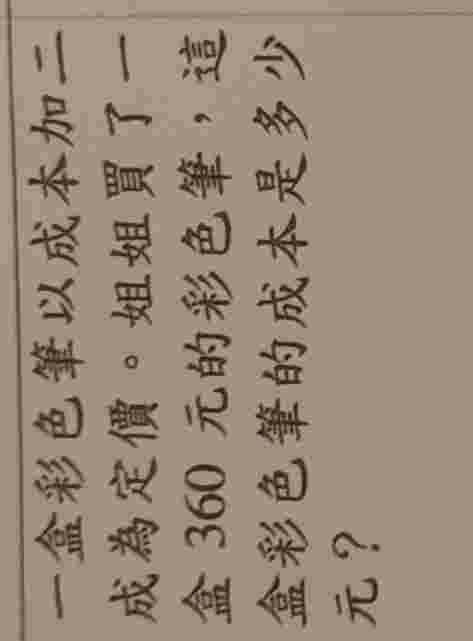 一盒彩色筆以成本加二
成為定價。姐姐買了一
盒 360 元的彩色筆，這
盒彩色筆的成本是多少
元？